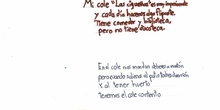 Mi cole "Las Cigüeñas" es muy importante
y cada día hacemos algo deporte.
Tiene comedor y biblioteca,
pero no tiene discoteca.
En el cole nos mandan deberes un montón
pero cuando salimos al patio
Y al "tener huerto"
Tenemos el cole contento